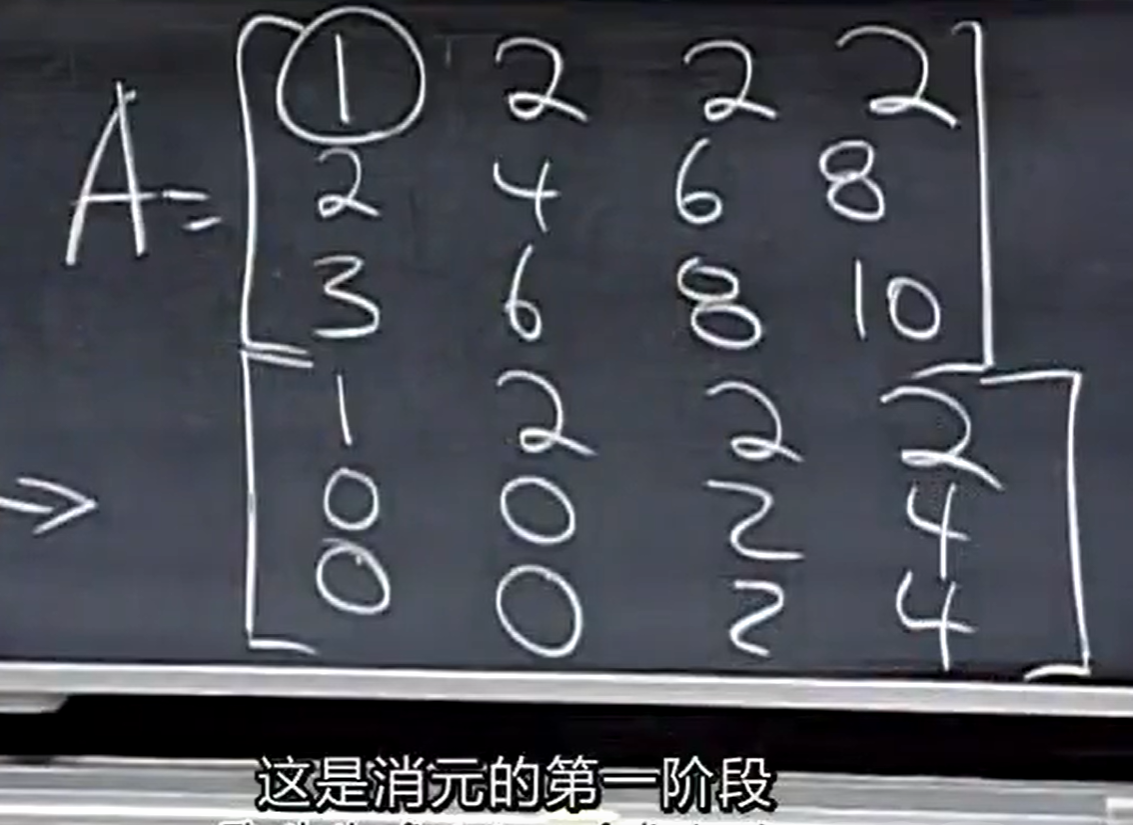 A=
1 2 2 2
2 4 6 8
3 6 8 10
→
1 2 2 2
0 0 2 4
0 0 2 4
这是消元的第一阶段